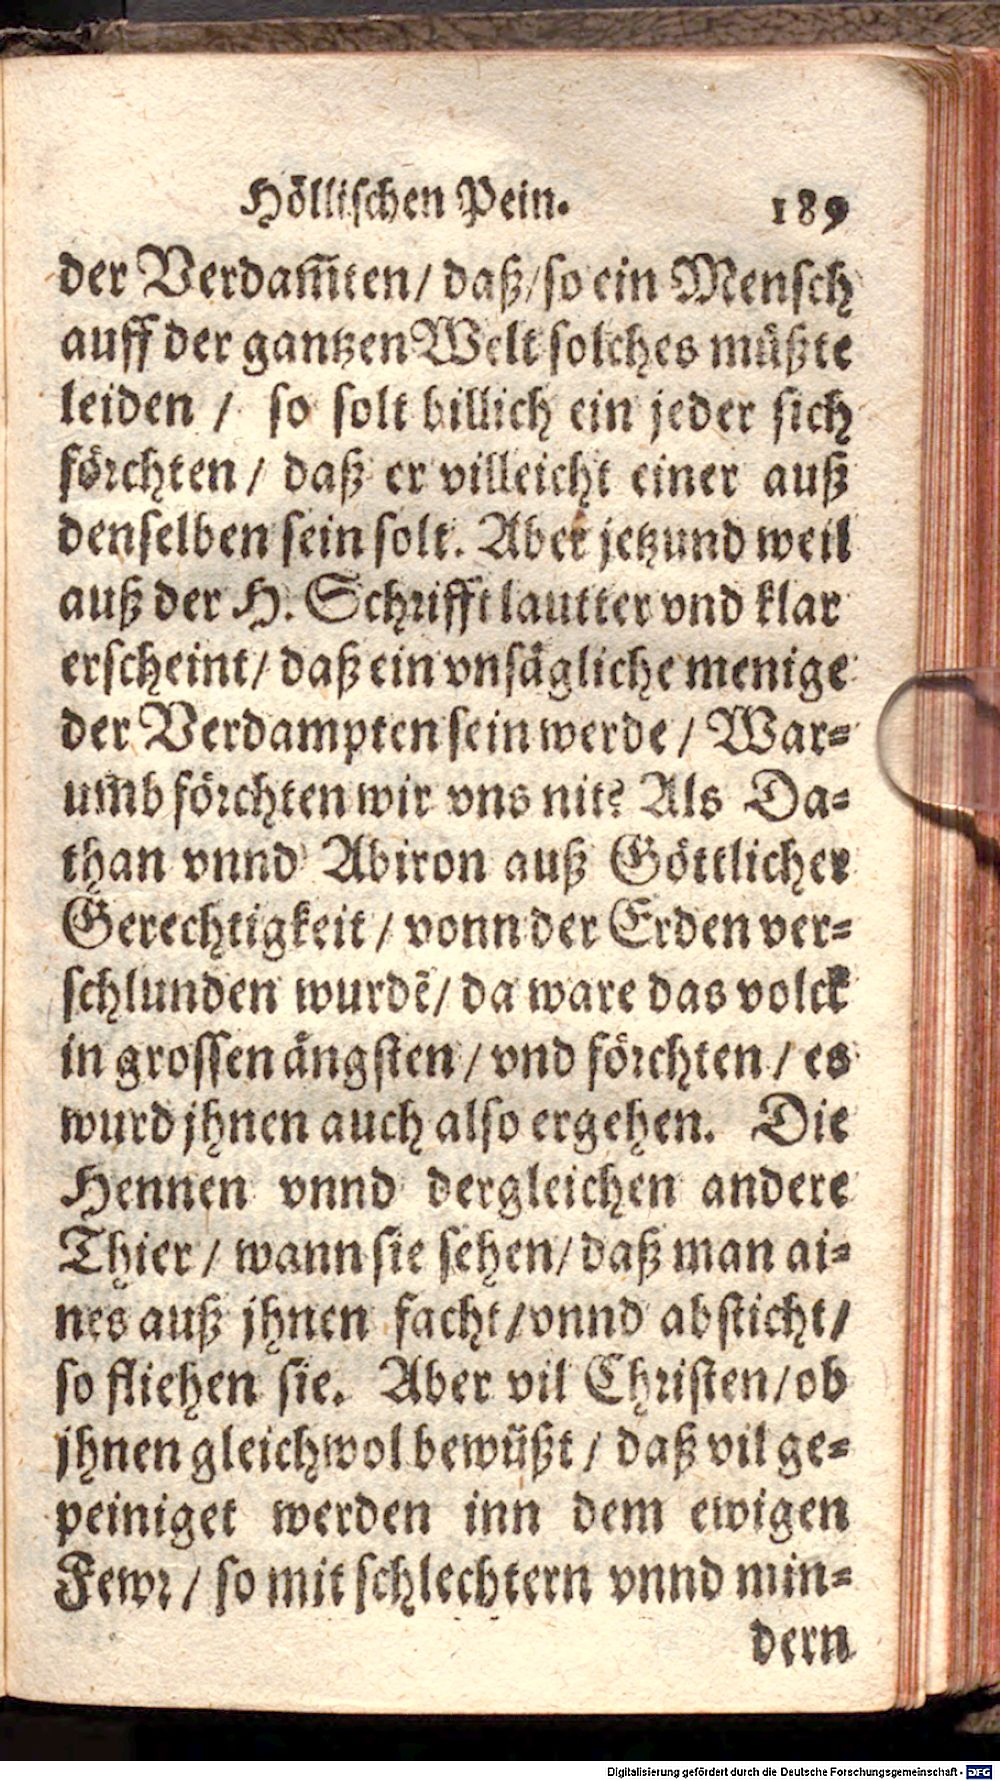 Höllischen Pein. 189
der Verdam̄ten/ daß/ so ein Mensch
auff der gantzen Welt solches müßte
leiden / so solt billich ein jeder sich
förchten/ daß er villeicht einer auß
denselben sein solt. Aber jetzund weil
auß der H. Schrifft lautter vnd klar
erscheint/ daß ein vnsägliche menige
der Verdampten sein werde / War-
umb förchten wir vns nit? Als Da-
than vnnd Abiron auß Göttlicher
Gerechtigkeit / vonn der Erden ver-
schlunden wurdẽ/ da ware das volck
in grossen ängsten / vnd förchten / es
wurd jhnen auch also ergehen. Die
Hennen vnnd dergleichen andere
Thier / wann sie sehen/ daß man ai-
nes auß jhnen facht/ vnnd absticht/
so fliehen sie. Aber vil Christen/ ob
jhnen gleichwol bewüßt / daß vil ge-
peiniget werden inn dem ewigen
Fewr / so mit schlechtern vnnd min-
dern
Digitalisierung gefördert durch die Deutsche Forschungsgemeinschaft - DFG